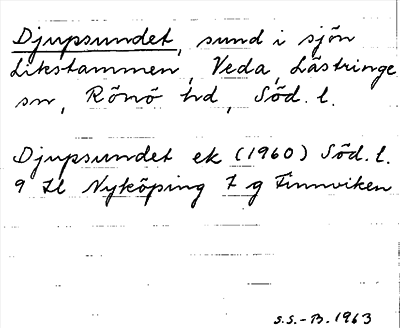 Djupsundet, sund i sjön
Likstammen, Veda, Lästringe
sn, Rönö hd, Söd. l.
Djupsundet ek (1960) Söd. l.
9 H l Nyköping 7 g Finnviken
S.S.-B. 1963